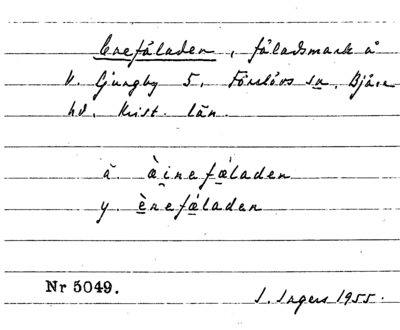 Enefåladen, fåladsmark å
V. Ljungby 5, Förslövs sn, Bjäre
hd, Krist. län.
ä. àinefæladen
y. ènefæladen
Nr 5049.
I. Ingers 1955.